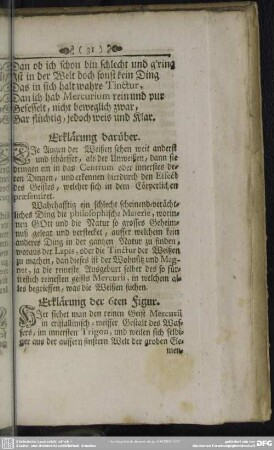 (31)
Dan ob ich schon bin schlecht und g'ring
Ist in der Welt doch sonst kein Ding
Das in sich halt wahre Tinctur,
Dan ich hab Mercurium rein und pur
Gefesselt, nicht beweglich zwar,
Gar flüchtig, jedoch weis und klar.
Erklärung darüber.
Die Augen der Weißen sehen weit anderst
und schärffer, als der Unweißen, dann sie
dringen ein in das Centrum oder innerstes de-
ren Dingen, und erkennen hierdurch den Effect
des Geistes, welcher sich in dem Cörperlichen
præsentiret.
Warhafftig ein schlecht scheinend-verächt-
liches Ding die philosophische Materie, worinn
nen GOtt und die Natur so grosses Geheim-
nuß gelegt und verstecket, ausser welchem kein
anderes Ding in der gantzen Natur zu finden,
woraus der Lapis, oder die Tinctur der Weisen
zu machen, dan dieses ist der Wohnsitz und Mag-
net, ja die reineste Ausgeburt selbst des so für-
treflich reinesten geists Mercurii, in welchem al-
les begrieffen, was die Weißen suchen.
Erklärung der 6ten Figur.
Hier sihet man den reinen Geist Mercurii
in cristallinisch, weisser Gestalt des Was-
sers, im innersten Trigon, und weilen sich selbi-
ger aus der aussern finstern Welt der groben Ge-
men-